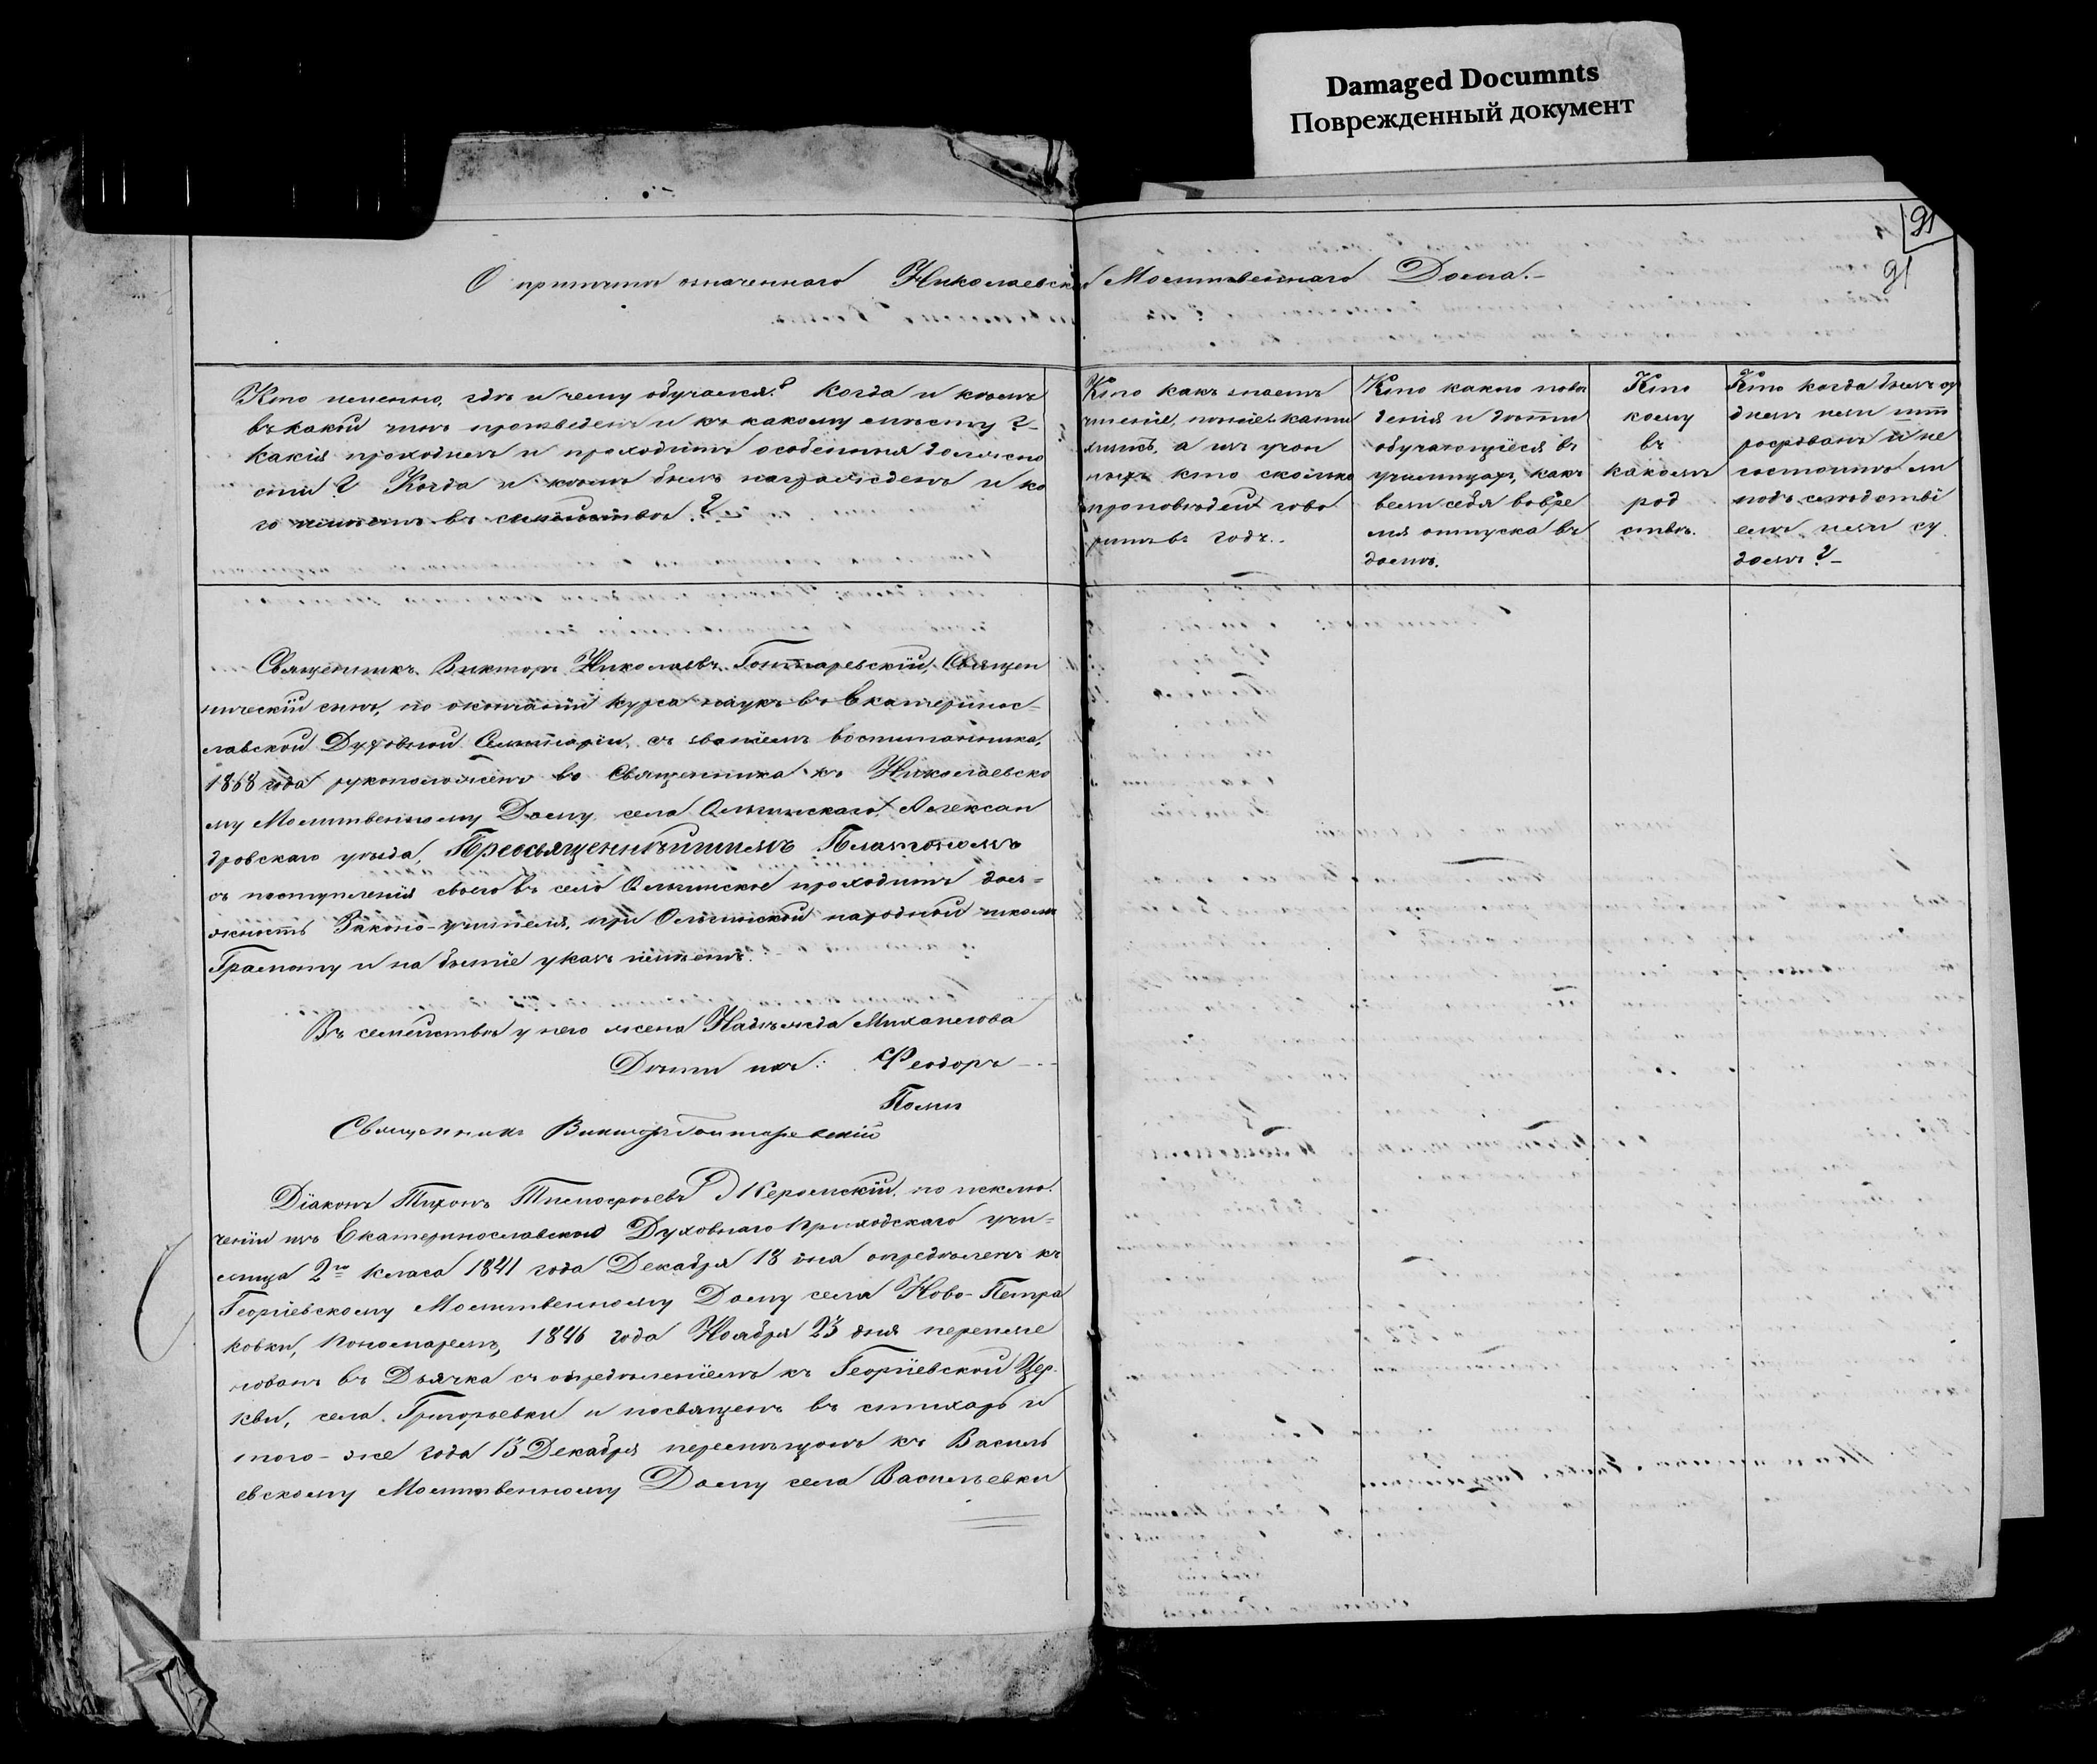 Damaged Documnts
Поврежденный документ
91
91
О причтѣ означеннаго Николаевскаго Молитвеннаго Дома.-
Кто именно, гдѣ и чему обучался? Когда и кѣмъ
въ какой чинъ произведенъ и къ какому мѣсту?-
Какія проходилъ и проходитъ особенныя должно
сти? Когда и кѣмъ былъ награжденъ и ко
го имѣетъ въ семействѣ?
Кто какъ знаетъ
чтеніе, пѣніе, кати
хизисъ, а изъ учен
ныхъ кто сколько
проповѣдей гово
ритъ въ годъ.
Кто какого пове
денія и дѣти
обучающіеся въ
училищахъ, какъ
вели себя во вре
мя отпуска въ
домъ.
Кто
кому
въ
какомъ
род
ствѣ.
Кто когда былъ су
димъ или штт
рафованъ и не
состоитъ ли
подъ слѣдстві
емъ или су
домъ?-
Священникъ Викторъ Николаевъ Гонтаревскій, Священ
ническій сынъ, по окончаніи курса наукъ въ Екатеринос-
лавской Духовной Семинаріи, съ званіемъ воспитанника,
1868 года рукоположенъ во Священника къ Николаевско
му Молитвенному Дому села Ольгинскаго, Алексан
дровскаго уѣзда, Преосвященнѣйшимъ Платономъ
съ поступленія своего въ село Ольгинское проходитъ дол-
жность Законо-учителя, при Ольгинской народной школѣ
Грамоту и на бытіе указъ имѣетъ.
Въ семействѣ у него жена Надѣжда Михаилова
Дѣти ихъ: Феодоръ -.-
Священникъ Викторъ Гонтаревскій
Діаконъ Тихонъ Тимофѣевъ по исклю-
ченіи изъ Екатеринославскаго Духовнаго Приходскаго учи-
лища 2го класа 1841 года Декабря 18 дня опредѣленъ къ
Георгіевскому Молитвенному Дому села Ново-Петра
ковки, Пономаремъ, 1846 года Ноября 23 дня переиме
нованъ въ Дьячка съ опредѣленіемъ къ Георгіевской Цер-
кви, села Григорьевки и посвященъ въ стихарь и
того-же года 13 Декабря перемѣщенъ къ Василь
евскому Молитвенному Дому села Васильевки